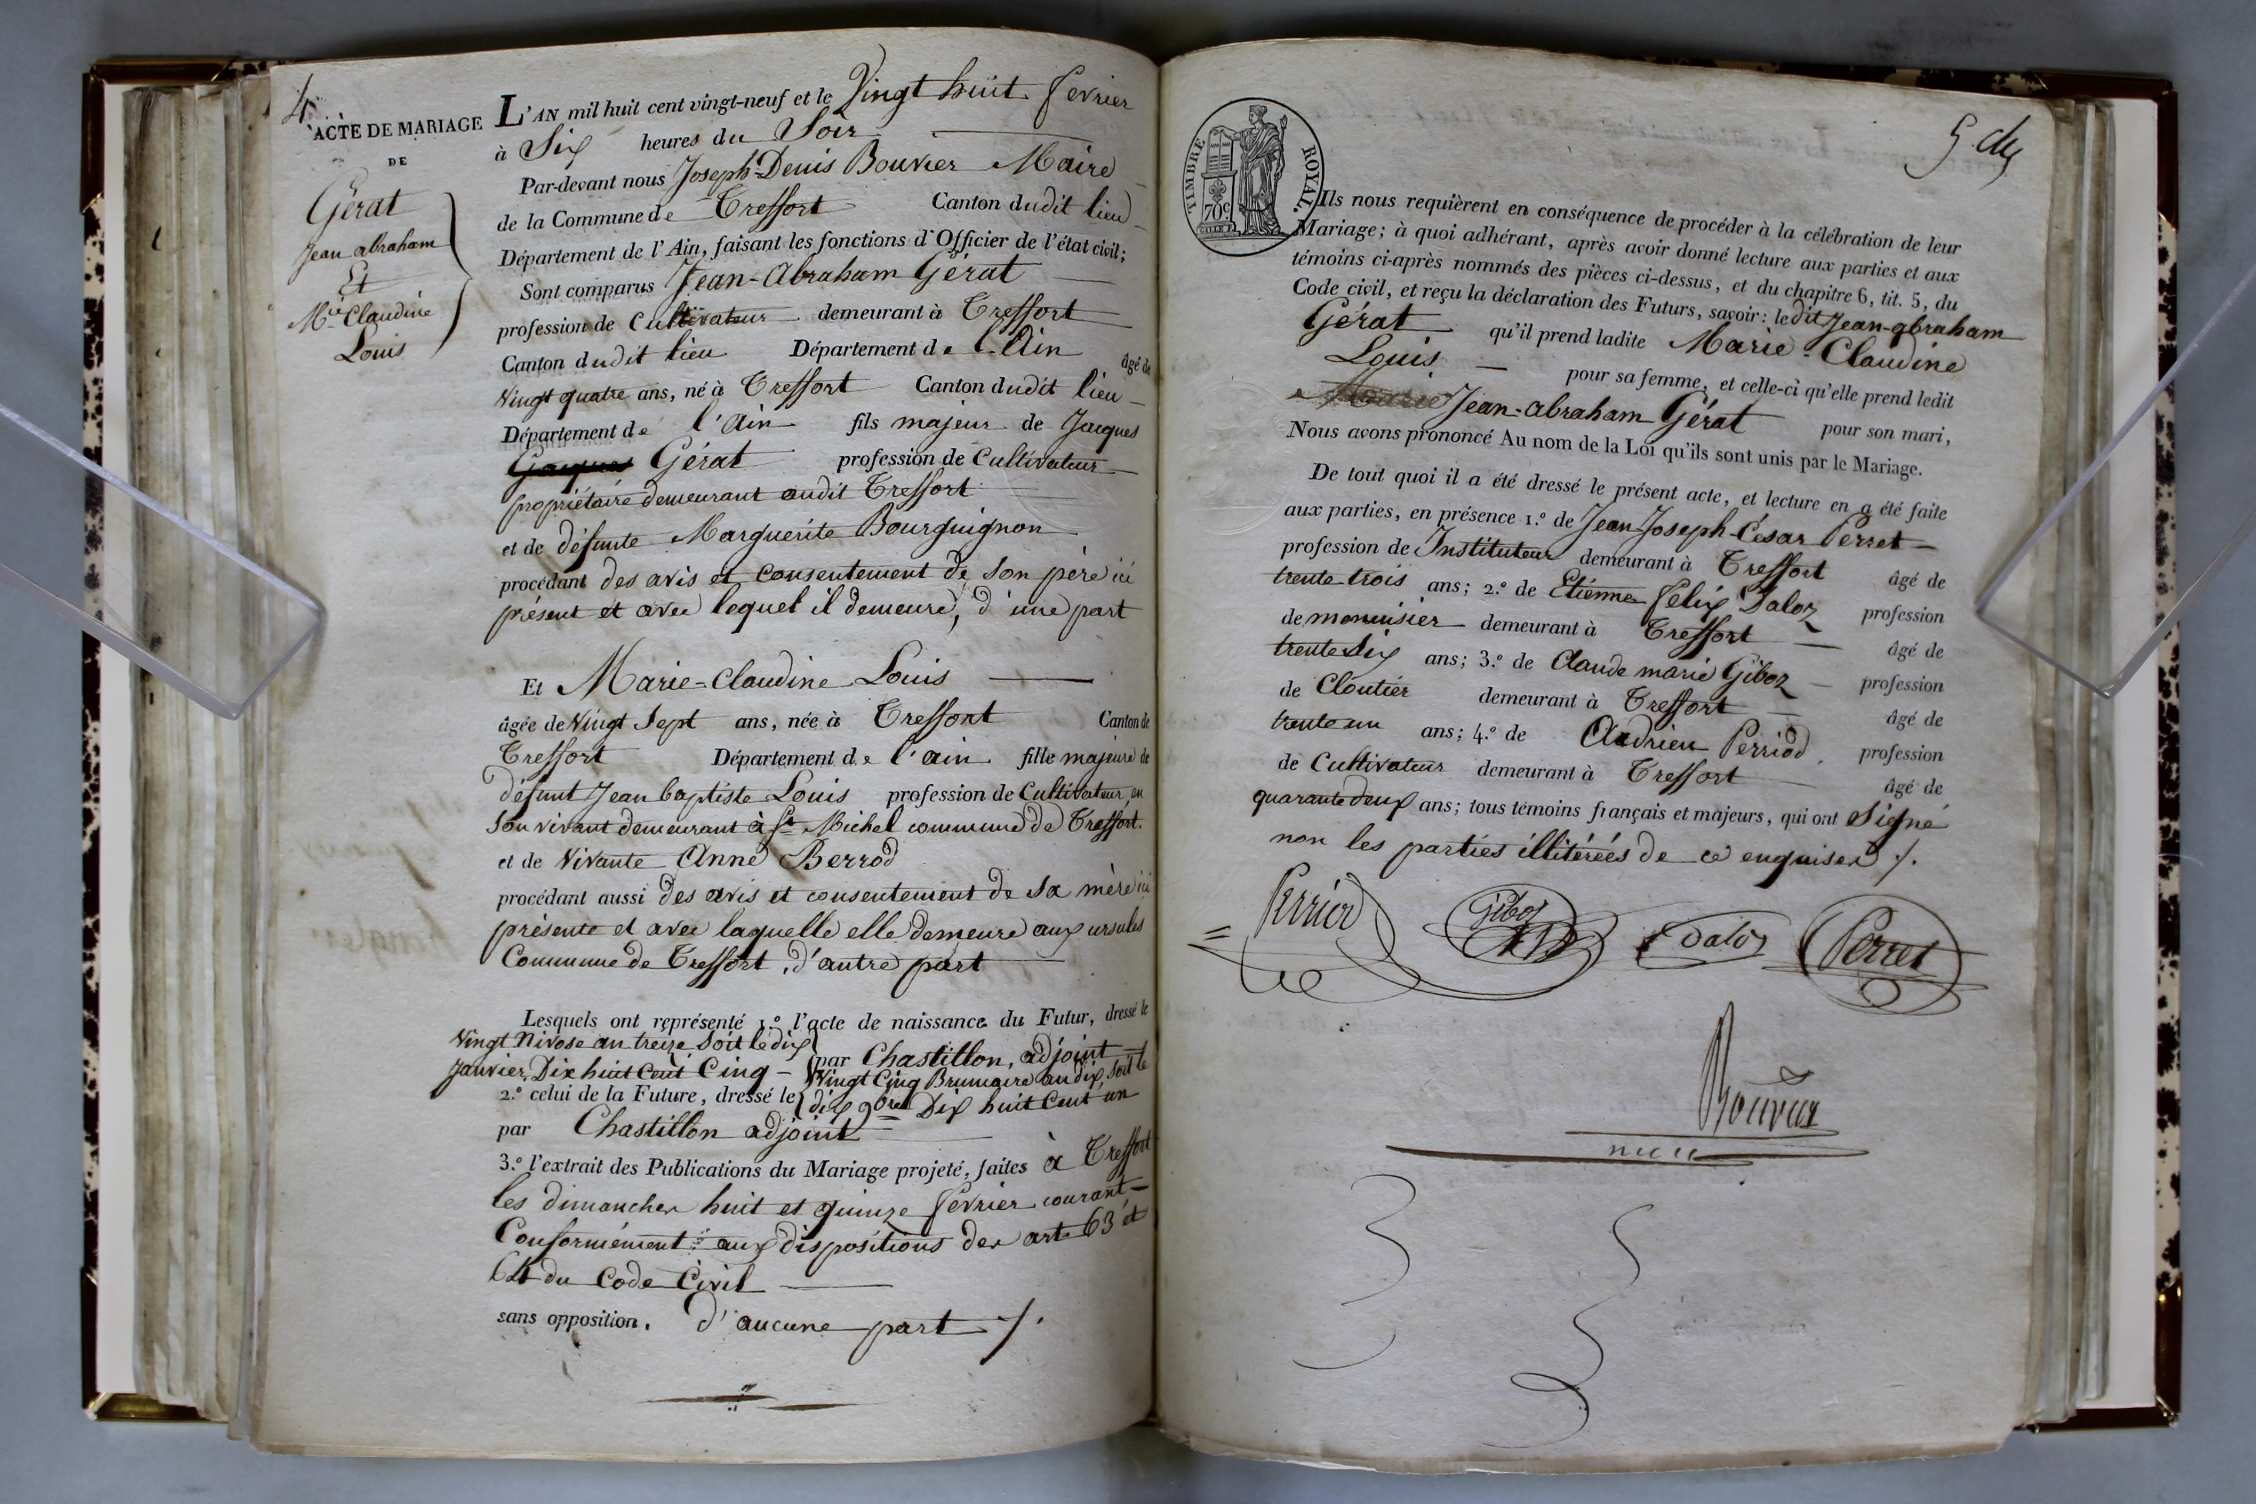 4.
ACTE DE MARIAGE
DE
Gérat
Jean abraham
Et
Mie Claudine
Louis
L'AN mil huit cent vingt-neuf et le Vingt huit fevrier
à Six heures du Soir
Par-devant nous Joseph-Denis Bouvier Maire
de la Commune de Treffort Canton dudit lieu
Département de l'Ain, faisant les fonctions d'Officier de l'état civil;
Sont comparus Jean-Abraham Gérat
profession de Cultivateur demeurant à Treffort
Canton dudit lieu Département de l'Ain âgé de
Vingt quatre ans, né à Treffort Canton dudit lieu
Département de l'Ain fils majeur de Jacques
Gérat profession de Cultivateur
propriétaire demeurant audit Treffort
et de défunte Marguerite Bourguignon
procédant des avis et consentement de son père ici
présent et avec lequel il demeure, d'une part
Et Marie-Claudine Louis
âgée de Vingt Sept ans, née à Treffort Canton de
Treffort Département de l'ain fille majeure de
défunt Jean baptiste Louis profession de Cultivateur en
Son vivant demeurant à St Michel commune de Treffort.
et de Vivante Anne Berrod
procédant aussi des avis et consentement de sa mère ici
présente et avec laquelle elle demeure aux ursules
Commune de Treffort, d'autre part
Lesquels ont représenté 1.º l'acte de naissance du Futur, dressé le
Vingt Nivose an treize soit le dix
Janvier Dix huit Cent Cinq par Chastillon, adjoint
Vingt Cinq Brumaire an dix, soit le
2.º celui de la Future, dressé le dix 9bre Dix huit Cent un
par Chastillon adjoint
3.º l'extrait des Publications du Mariage projeté, faites à Treffort
les dimanches huit et quinze fevrier courant
Conformément aux dispositions des arts 63 et
64 du Code Civil
sans opposition. d'aucune part ./.
TIMBRE ROYAL.
70c
Ils nous requièrent en conséquence de procéder à la célébration de leur
Mariage; à quoi adhérant, après avoir donné lecture aux parties et aux
témoins ci-après nommés des pièces ci-dessus, et du chapitre 6, tit. 5, du
Code civil, et reçu la déclaration des Futurs, savoir: ledit Jean-abraham
Gérat qu'il prend ladite Marie-Claudine
Louis pour sa femme, et celle-ci qu'elle prend ledit
Jean-abraham Gérat pour son mari,
Nous avons prononcé Au nom de la Loi qu'ils sont unis par le Mariage.
De tout quoi il a été dressé le présent acte, et lecture en a été faite
aux parties, en présence 1.º de Jean-Joseph-César Perret
profession de Instituteur demeurant à Treffort âgé de
trente trois ans; 2.º de Etienne felix Daloz profession
de menuisier demeurant à Treffort âgé de
trente Six ans; 3.º de Claude marie Giboz profession
de Cloutier demeurant à Treffort âgé de
trente un ans; 4.º de Andrien Perriod profession
de Cultivateur demeurant à Treffort âgé de
quarante deux ans; tous témoins français et majeurs, qui ont Signé
non les parties illitérées de ce enquises ./.
Perriod Giboz Daloz Perret
Bouvier